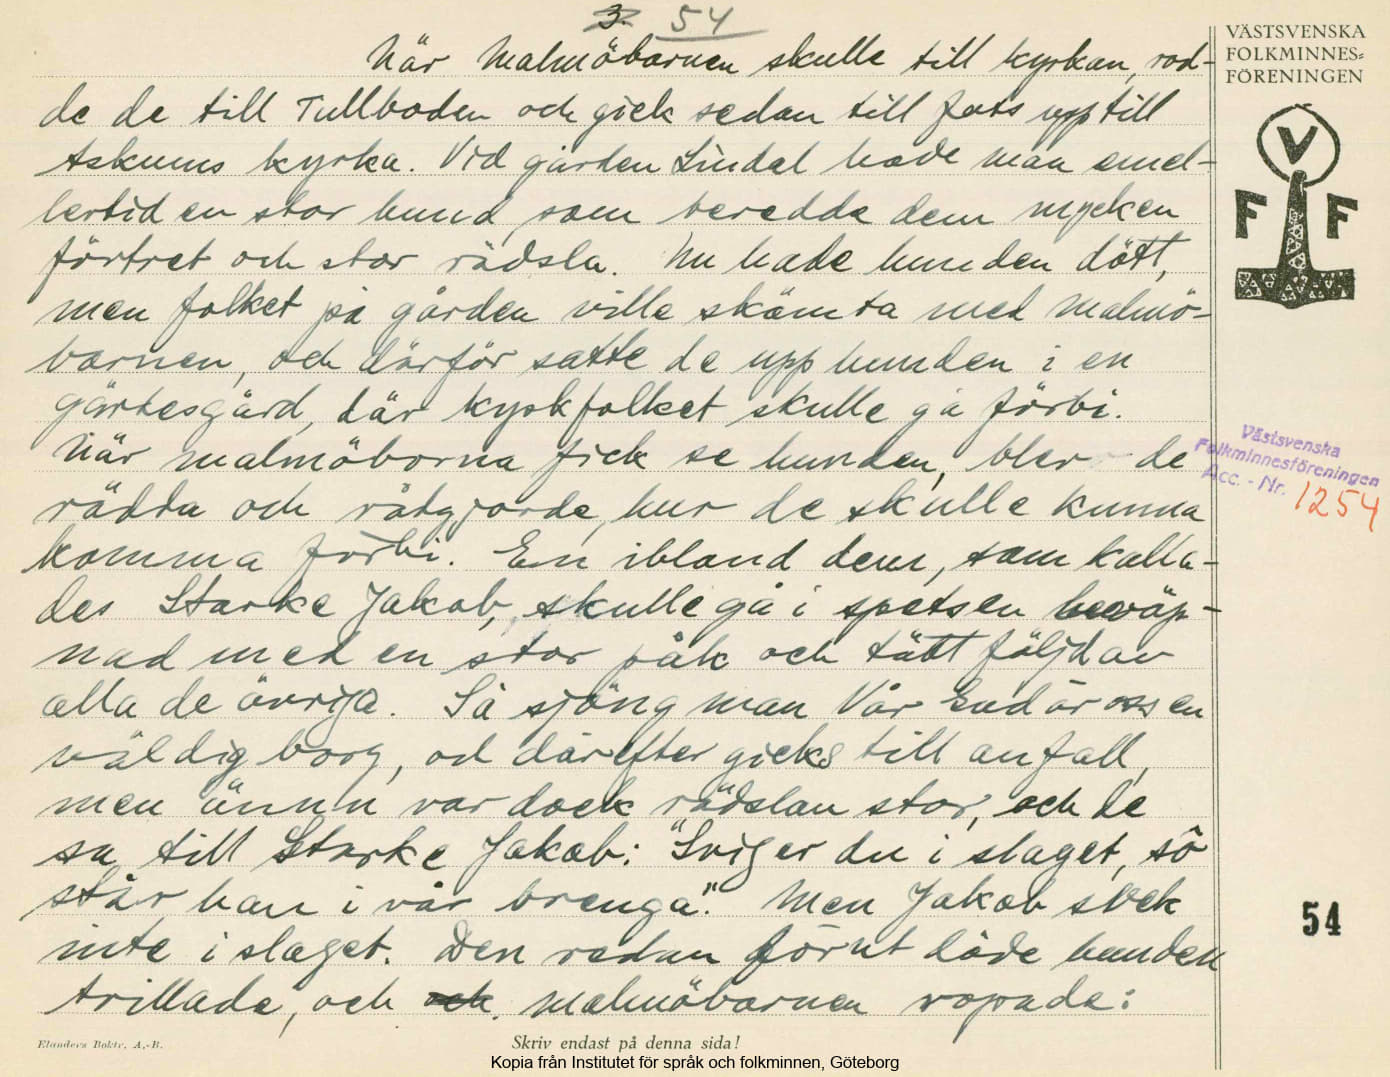 3. 54
När Malmöbarnen skulle till kyrkan, rod-
de de till Tullboden och gick sedan till fots upp till
Askums kyrka. Vid gården Lindal hade man emel-
lertid en stor hund, som beredde dem mycken
förtret och stor rädsla. Nu hade hunden dött,
men folket på gården ville skämta med Malmö-
barnen, och därför satte de upp hunden i en
gärtesgård, där kyrkfolket skulle gå förbi.
När malmöborna fick se hunden, blev de
rädda och rådgjorde, hur de skulle kunna
komma förbi. En ibland dem, som kalla-
des Starke Jakob, skulle gå i spetsen beväp-
nad med en stor påk och tätt följd av
alla de övriga. Så sjöng man Vår Gud är oss en
väldig borg, och därefter gicks till anfall,
men ännu var dock rädslan stor, och de
sa till Starke Jakob: "Sviger du i slaget, så
står han i vår brenga". Men Jakob svek
inte i slaget. Den redan förut döde hunden
trillade, och och malmöbarnen ropade:
VÄSTSVENSKA
FOLKMINNES-
FÖRENINGEN
V
F F
Västsvenska
Folkminnesföreningen
Acc. - Nr. 1254
54
Elanders Boktr. A.-B.
Skriv endast på denna sida!
Kopia från Institutet för språk och folkminnen, Göteborg